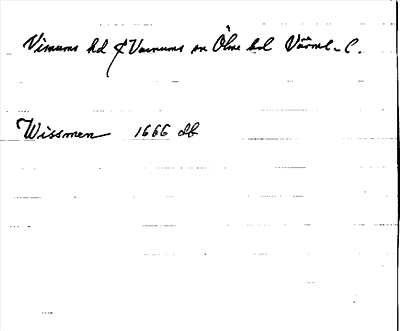 Vimums hd ⊄ Varnums sn Ölme hd Värml. l.
Wissmen 1666 db